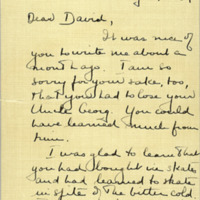 Dear David,
It was nice of
you to write me about a
month ago. I am so
sorry for your sake, too,
that you had to lose your
Uncle Georg. You could
have learned much from
him.
I was glad to learn that
you had bought in skates
and had learned to skate
in spite of the bitter cold